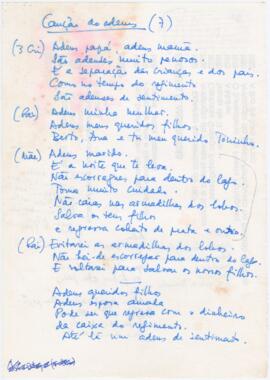 Canção do adeus (7)
(3 Cri) Adeus papá, adeus mamã.
São adeuses muito penosos.
É a separação das crianças e dos pais.
Como no tempo do regimento
São adeuses de sentimento.
(Pai) Adeus minha mulher.
Adeus meus queridos filhos.
Berto, Ana e tu meu querido Toninho.
(Mãe) Adeus marido.
É a noite que te leva.
Não escorregues para dentro do lago.
Toma muito cuidado.
Não caias nas armadilhas dos lobos.
Salva os teus filhos
e regressa coberto de prata e ouro.
(Pai) Evitarei as armadilhas dos lobos.
Não hei-de escorregar para dentro do lago
E voltarei para salvar os nossos filhos.
Adeus queridos filhos
Adeus esposa amada
Pode ser que regresse com o dinheiro
da caixa do regimento.
Até lá um adeus de sentimento.